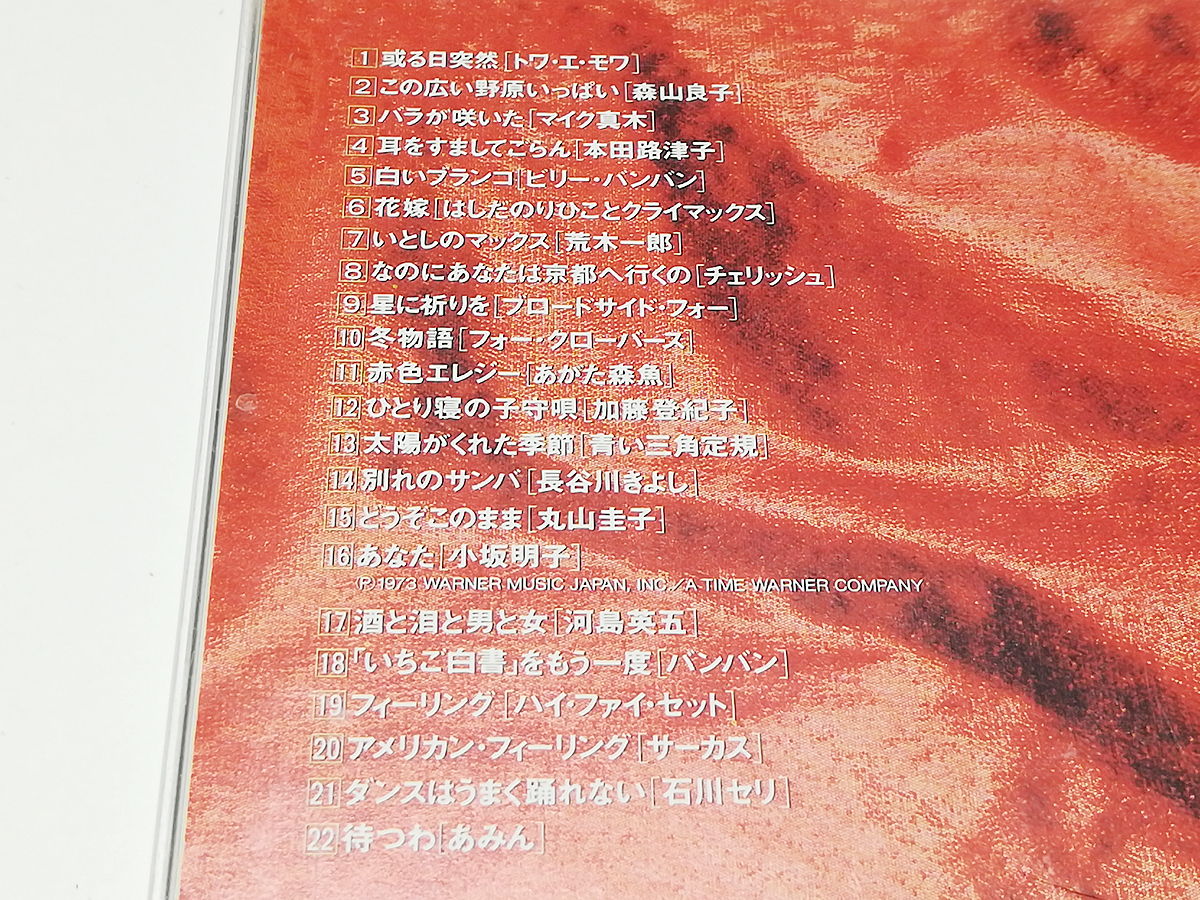 1 或る日突然[トワ・エ・モワ]
2 この広い野原いっぱい[森山良子]
3 バラが咲いた[マイク真木]
4 耳をすましてごらん[本田路津子]
5 白いブランコ[ビリー・バンバン]
6 花嫁[はしだのりひことクライマックス]
7 いとしのマックス[荒木一郎]
8 なのにあなたは京都へ行くの[チェリッシュ]
9 星に祈りを[ブロードサイド・フォー]
10 冬物語[フォー・クローバーズ]
11 赤色エレジー[あがた森魚]
12 ひとり寝の子守唄[加藤登紀子]
13 太陽がくれた季節[青い三角定規]
14 別れのサンバ[長谷川きよし]
15 どうぞこのまま[丸山圭子]
16 あなた[小坂明子]
Ⓟ1973 WARNER MUSIC JAPAN, INC./A TIME WARNER COMPANY
17 酒と泪と男と女[河島英五]
18 「いちご白書」をもう一度[バンバン]
19 フィーリング[ハイ・ファイ・セット]
20 アメリカン・フィーリング[サーカス]
21 ダンスはうまく踊れない[石川セリ]
22 待つわ[あみん]